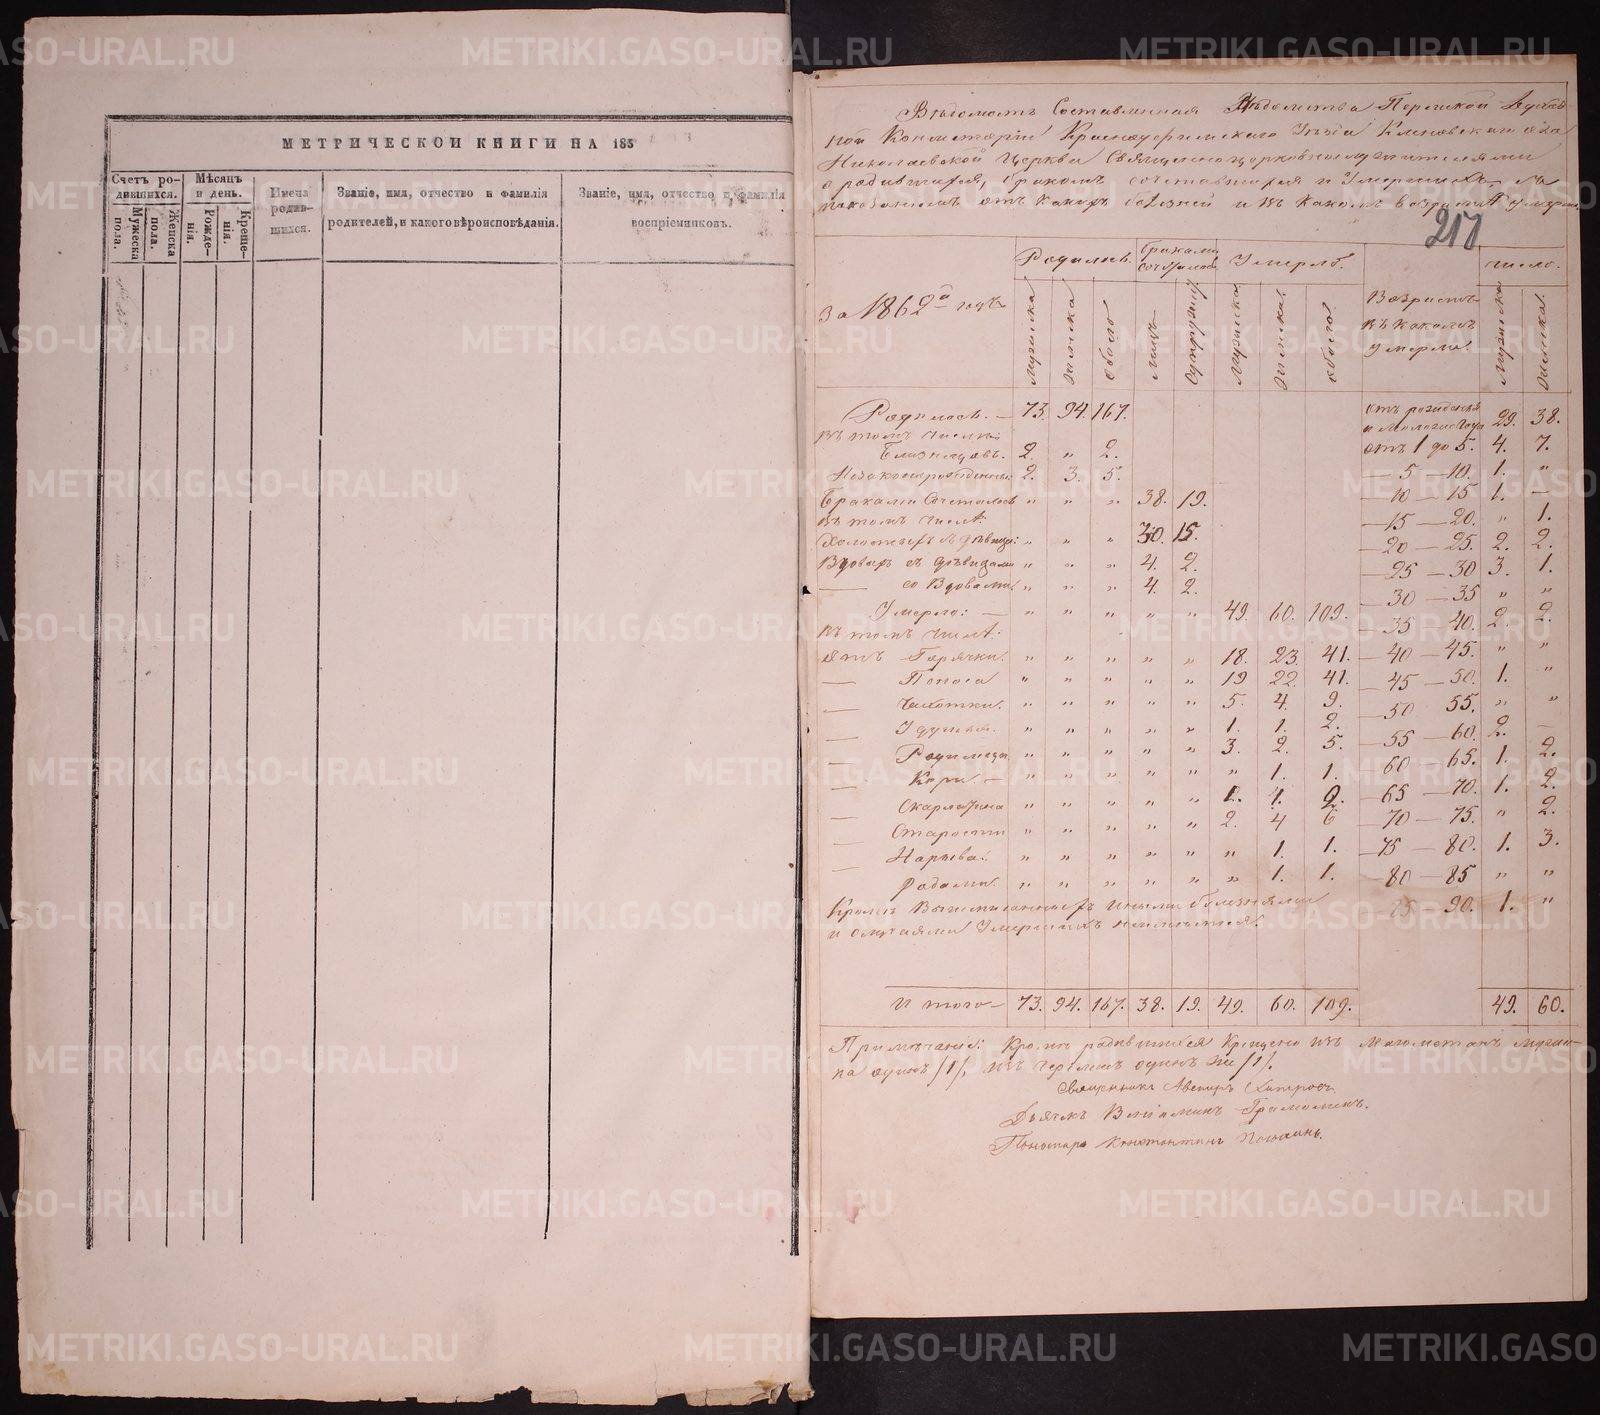 МЕТРИЧЕСКОЙ КНИГИ НА 185
Счетъ родившихся.
Мужеска пола.
Женска пола.
Мѣсяцъ и день.
Рожденія.
Крещенія.
Имена родившихся.
Званіе, имя, отчество и фамилія
родителей, и какого вѣроисповѣданія.
Званіе, имя, отчество и фамилія
воспріемниковъ.
Вѣдомость Составленная Вѣдомства Пермской Духов-
ной Консисторіи Красноуфимскаго Уѣзда Кленовскаго села
Николаевской Церкви Священноцерковнослужителями
о родившихся, бракомъ сочетавшихся и Умершихъ, съ
показаніемъ отъ какихъ болѣзней и въ какомъ возрастѣ умерли.
217
За 1862й годъ
Родилось.
Браками сочеталось
Умерло.
число.
Мужеска
Женска
Обоего
Лицъ
Супружествъ
Мужеска
Женска
Обоего
Возрастъ въ какомъ умерло.
Мужеска
Женска.
Родилось. — 73. 94. 167. отъ рожденія и моложе года 29. 38.
въ томъ числѣ:
Близнецовъ. 2. " 2. отъ 1 до 5. 4. 7.
Незаконнорожденныхъ 2. 3. 5. — 5 — 10. 1. "
Браками Сочеталось " " " 38. 19. — 10 — 15 1. —
въ томъ числѣ: — 15 — 20. " 1.
Холостыхъ съ дѣвицами " " " 30. 15. — 20 — 25. 2. 2.
Вдовыхъ съ дѣвицами " " " 4. 2. — 25 — 30 3. 1.
— со Вдовами. " " " 4. 2. — 30 — 35 " "
Умерло: — " " " " " 49. 60. 109. — 35 40. 2. 2.
въ томъ числѣ:
отъ Горячки. " " " " " 18. 23. 41. — 40 — 45. " "
— Поноса " " " " " 19 22. 41. — 45 — 50. 1. "
— Чахотки. " " " " " 5. 4. 9. — 50 55. " "
— Удушья. " " " " " 1. 1. 2. — 55 — 60. 2. —
— Родимца " " " " " 3. 2. 5. 60 — 65. 1. 2.
— Кори — " " " " " " 1. 1. — 65 — 70. 1. 2.
— Скарлатина " " " " " 1. 1. 2. — 70 — 75. " 2.
— Старости " " " " " 2. 4 6 — 75 — 80. 1. 3.
— Нарыва. " " " " " " 1. 1. — 80 — 85 " "
Родами. " " " " " " 1. 1. 85 90. 1. "
Кромѣ Вышеписанныхъ иными болѣзнями
и случаями Умершихъ неимѣется.
И того — 73. 94. 167. 38. 19. 49. 60. 109. 49. 60.
Примѣчаніе: Кромѣ родившихся Крещено изъ Магометанъ мужес-
ка одинъ /1/, изъ черемисъ одинъ же /1/.
Священникъ Авениръ
Дьячекъ Веніаминъ
Пономарь Константинъ
METRIKI.GASO-URAL.RU